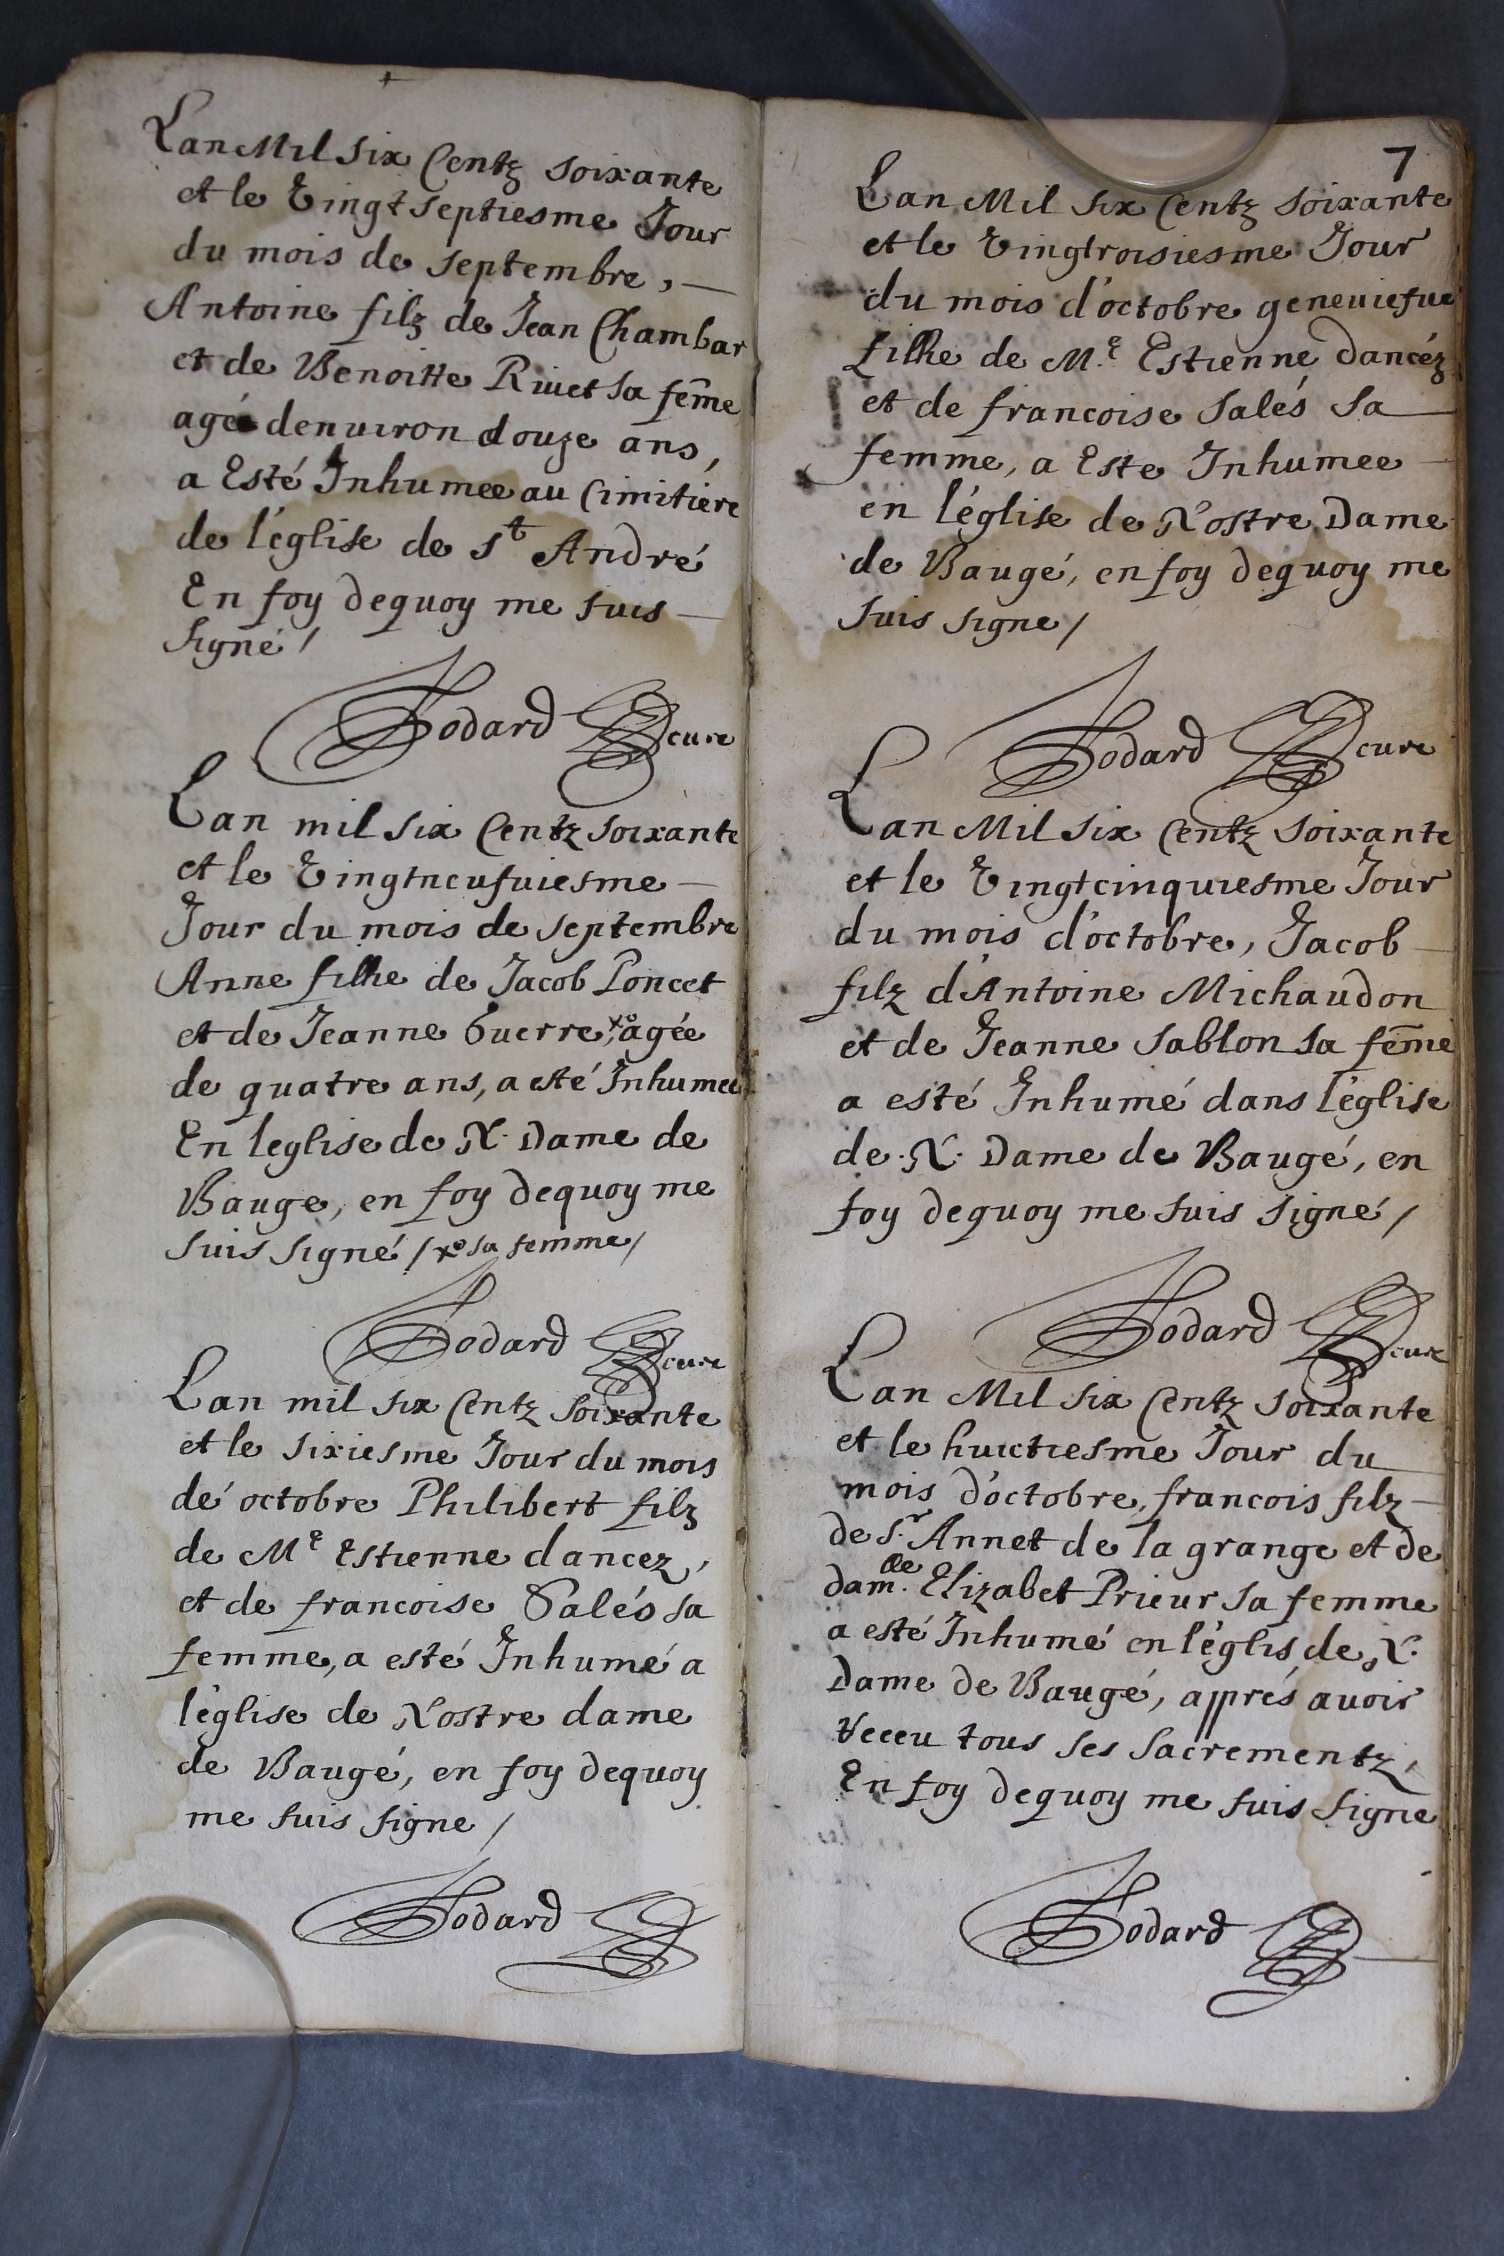 Lan Mil six Centz soixante
et le Vingt septiesme Jour
du mois de septembre, —
Antoine filz de Jean Chambar
et de Benoitte Riuet sa fem̃e
agé denuiron douze ans,
a Esté Inhumee au Cimitiere
de l'église de St André
En foy dequoy me suis —
signé /
Godard cure
Lan mil six Centz soixante
et le Vingtneufuiesme —
Jour du mois de septembre
Anne filhe de Jacob Poncet
et de Jeanne Guerre, xo agée
de quatre ans, a esté Inhumee
En leglise de N. Dame de
Bauge, en foy dequoy me
suis signé / xo sa femme /
Godard cure
Lan mil six Centz soixante
et le sixiesme Jour du mois
dé octobre Philibert filz
de Me Estienne dancez,
et de francoise Salés sa
femme, a esté Inhumé a
l'église de Nostre dame
de Baugé, en foy dequoy
me suis signe /
Godard
7
Lan Mil six Centz soixante
et le Vingtroisiesme Jour
du mois d'octobre geneuiefue
filhe de Me Estienne dancéz
et de francoise salés sa —
femme, a Este Inhumee —
en l'église de Nostre Dame
de Baugé, en foy dequoy me
suis signe /
Godard cure
Lan Mil six Centz soixante
et le Vingtcinquiesme Jour
du mois d'octobre, Jacob —
filz d'Antoine Michaudon
et de Jeanne sablon sa fem̃e
a esté Inhumé dans l'église
de .N. Dame de Baugé, en
foy dequoy me suis signé /
Godard cure
Lan Mil six Centz soixante
et le huictiesme Jour du —
mois d'octobre, francois filz —
de Sr. Annet de la grange et de
damlle. Elizabet Prieur sa femme
a esté Inhumé en l'églis de N.
Dame de Baugé, apprés auoir
receu tous ses sacrementz,
En foy dequoy me suis signe
Godard